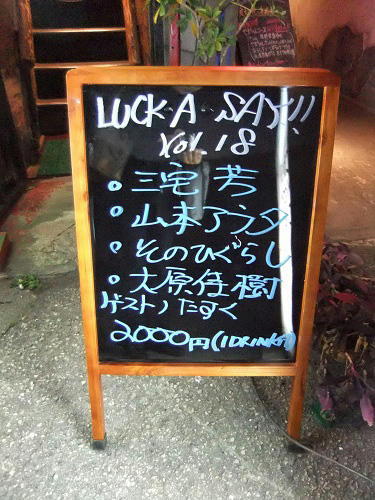 LUCK-A SAY!!
Vol.18
• 三宅 芳
• 山本アウタ
• そのひぐらし
• 大原佳樹
ゲスト/たすく
2000円(1DRINK付)